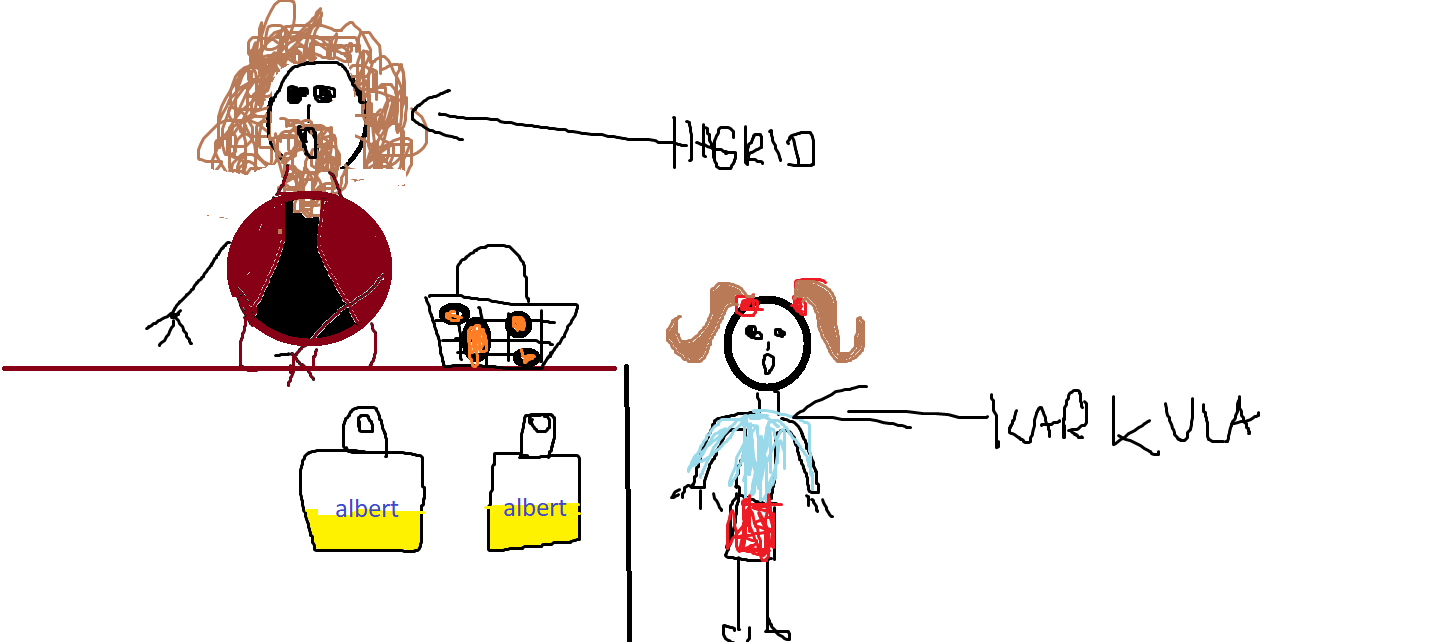 HAGRID
KARKULA
albert
albert